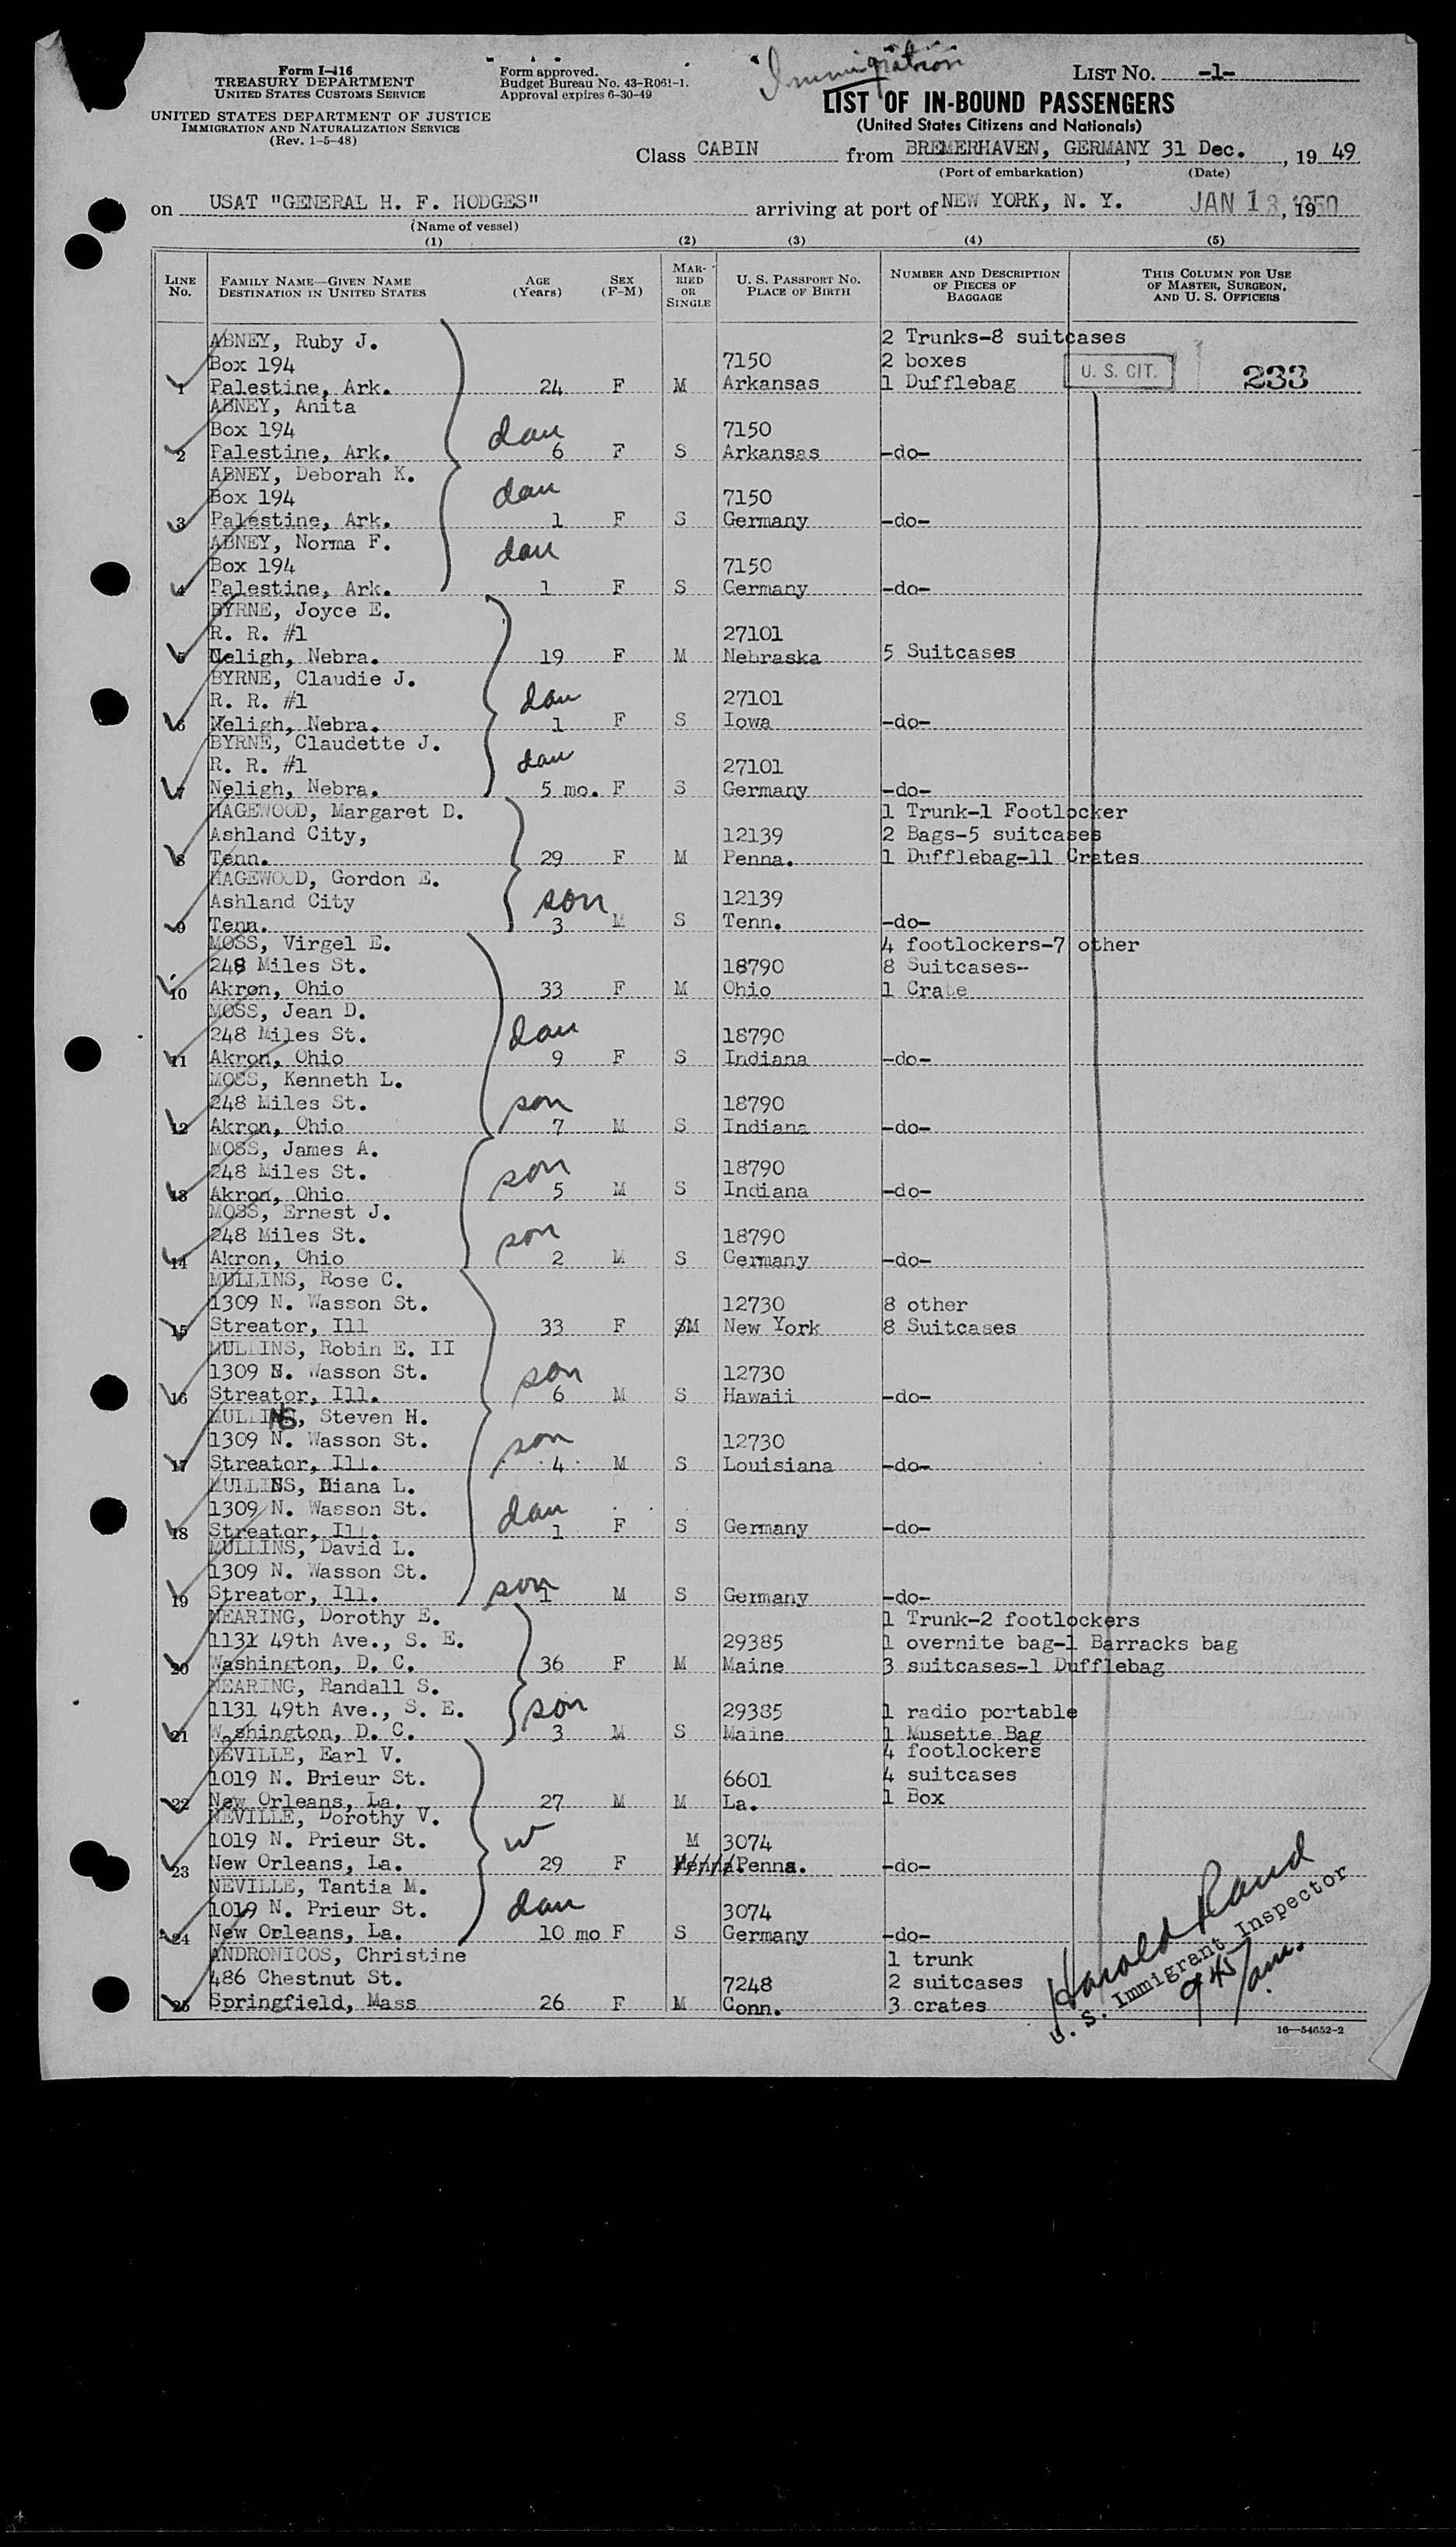 Form I-416
TREASURY DEPARTMENT
UNITED STATES CUSTOMS SERVICE
UNITED STATES DEPARTMENT OF JUSTICE
IMMIGRATION AND NATURALIZATION SERVICE
(Rev. 1-5-48)
Form approved.
Budget Bureau No. 43-R061-1.
Approval expires 6-30-49
Immigration
LIST NO. -1-
LIST OF IN-BOUND PASSENGERS
(United States Citizens and Nationals)
Class CABIN from BREMERHAVEN, GERMANY, 31 Dec., 19 49
(Port of embarkation) (Date)
on USAT "GENERAL H. F. HODGES" arriving at port of NEW YORK, N. Y. JAN 13, 1950
(Name of vessel)
(1) (2) (3) (4) (5)
LINE No. FAMILY NAME—GIVEN NAME DESTINATION IN UNITED STATES AGE (Years) SEX (F-M) MARRIED OR SINGLE U. S. PASSPORT NO. PLACE OF BIRTH NUMBER AND DESCRIPTION OF PIECES OF BAGGAGE THIS COLUMN FOR USE OF MASTER, SURGEON, AND U. S. OFFICERS
ABNEY, Ruby J. 2 Trunks-8 suitcases
Box 194 7150 2 boxes U. S. CIT. 233
1 Palestine, Ark. 24 F M Arkansas 1 Dufflebag
ABNEY, Anita
Box 194 dau 7150
2 Palestine, Ark. 6 F S Arkansas -do-
ABNEY, Deborah K.
Box 194 dau 7150
3 Palestine, Ark. 1 F S Germany -do-
ABNEY, Norma F.
Box 194 dau 7150
4 Palestine, Ark. 1 F S Germany -do-
BYRNE, Joyce E.
R. R. #1 27101
5 Neligh, Nebra. 19 F M Nebraska 5 Suitcases
BYRNE, Claudie J.
R. R. #1 dau 27101
6 Neligh, Nebra. 1 F S Iowa -do-
BYRNE, Claudette J.
R. R. #1 dau 27101
7 Neligh, Nebra. 5 mo. F S Germany -do-
HAGEWOOD, Margaret D. 1 Trunk-1 Footlocker
Ashland City, 12139 2 Bags-5 suitcases
8 Tenn. 29 F M Penna. 1 Dufflebag-11 Crates
HAGEWOOD, Gordon E.
Ashland City son 12139
9 Tenn. 3 M S Tenn. -do-
MOSS, Virgel E. 4 footlockers-7 other
248 Miles St. 18790 8 Suitcases--
10 Akron, Ohio 33 F M Ohio 1 Crate
MOSS, Jean D.
248 Miles St. dau 18790
11 Akron, Ohio 9 F S Indiana -do-
MOSS, Kenneth L.
248 Miles St. son 18790
12 Akron, Ohio 7 M S Indiana -do-
MOSS, James A.
248 Miles St. son 18790
13 Akron, Ohio 5 M S Indiana -do-
MOSS, Ernest J.
248 Miles St. son 18790
14 Akron, Ohio 2 M S Germany -do-
MULLINS, Rose C.
1309 N. Wasson St. 12730 8 other
15 Streator, Ill 33 F SM New York 8 Suitcases
MULLINS, Robin E. II
1309 N. Wasson St. son 12730
16 Streator, Ill. 6 M S Hawaii -do-
MULLINS, Steven H.
1309 N. Wasson St. son 12730
17 Streator, Ill. 4 M S Louisiana -do-
MULLINS, Diana L.
1309 N. Wasson St. dau
18 Streator, Ill. 1 F S Germany -do-
MULLINS, David L.
1309 N. Wasson St. son
19 Streator, Ill. 1 M S Germany -do-
NEARING, Dorothy E. 1 Trunk-2 footlockers
1131 49th Ave., S. E. 29385 1 overnite bag-1 Barracks bag
20 Washington, D. C. 36 F M Maine 3 suitcases-1 Dufflebag
NEARING, Randall S.
1131 49th Ave., S. E. son 29385 1 radio portable
21 Washington, D. C. 3 M S Maine 1 Musette Bag
NEVILLE, Earl V. 4 footlockers
1019 N. Brieur St. 6601 4 suitcases
22 New Orleans, La. 27 M M La. 1 Box
NEVILLE, Dorothy V.
1019 N. Prieur St. w M 3074
23 New Orleans, La. 29 F Penna. Penna. -do-
NEVILLE, Tantia M.
1019 N. Prieur St. dau 3074
24 New Orleans, La. 10 mo F S Germany -do-
ANDRONICOS, Christine 1 trunk
486 Chestnut St. 7248 2 suitcases
25 Springfield, Mass 26 F M Conn. 3 crates
Harold Rand
U. S. Immigrant Inspector
9 45/am.
16—54652-2